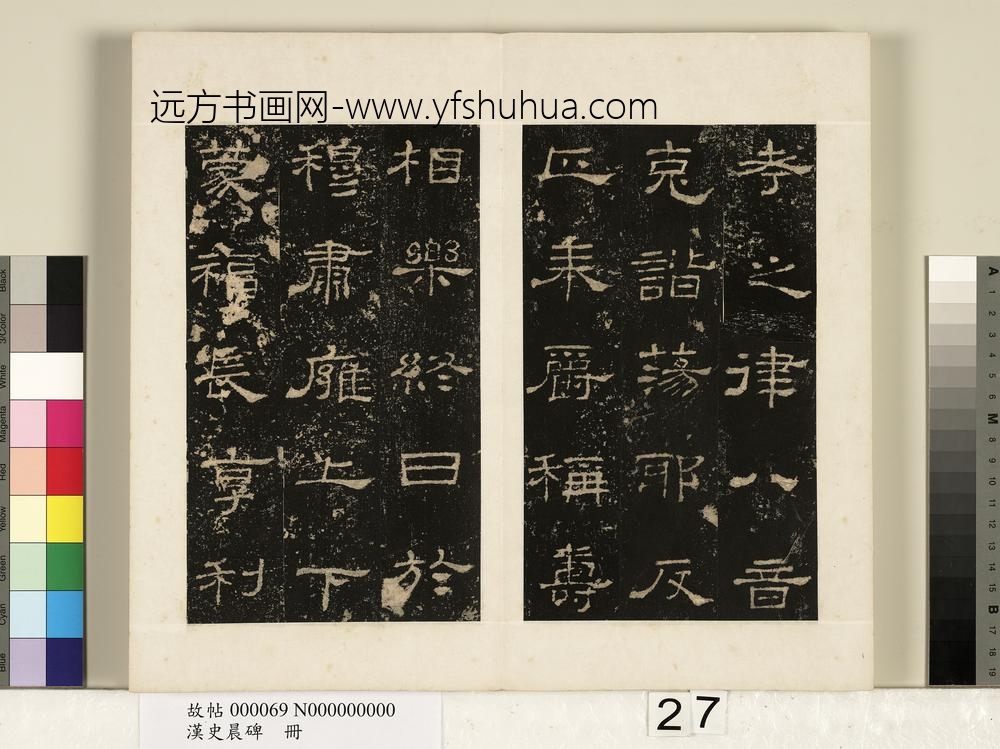 远方书画网-www.yfshuhua.com
考之律八音
克諧蕩耶反
正奉爵稱壽
相樂終日於
穆肅廱上下
蒙福長享利
故帖 000069 N000000000
漢史晨碑 冊
27
Black
3/Color
White
Magenta
Red
Yellow
Green
Cyan
Blue
A
1
2
3
4
5
6
M
8
9
10
11
12
13
14
15
B
17
18
19